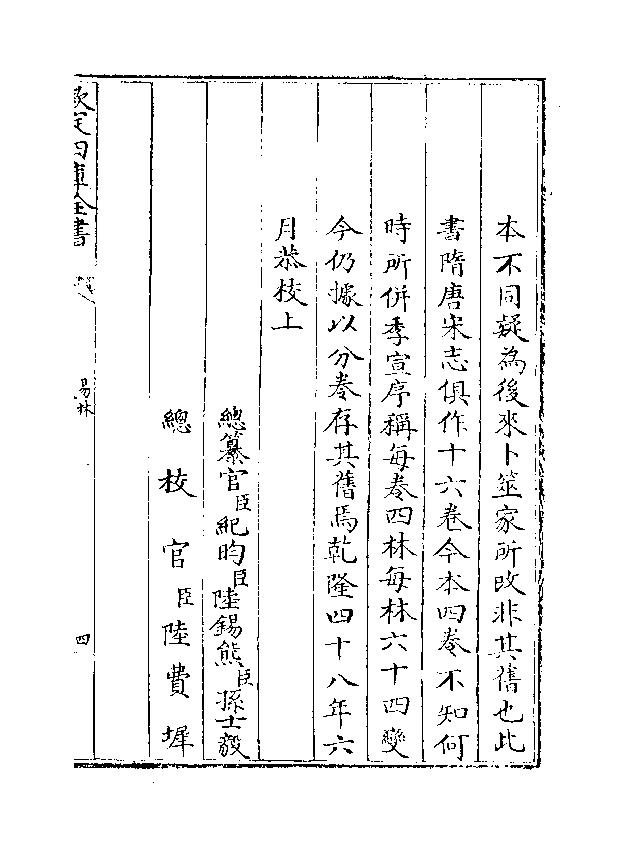 本不同疑為後來卜筮家所改非其舊也此
書隋唐宋志俱作十六卷今本四卷不知何
時所併季宣序稱每卷四林每林六十四變
今仍據以分卷存其舊焉乾隆四十八年六
月恭校上
總纂官臣紀昀臣陸錫熊臣孫士毅
總校官臣陸費墀
欽定四庫全書
易林
四